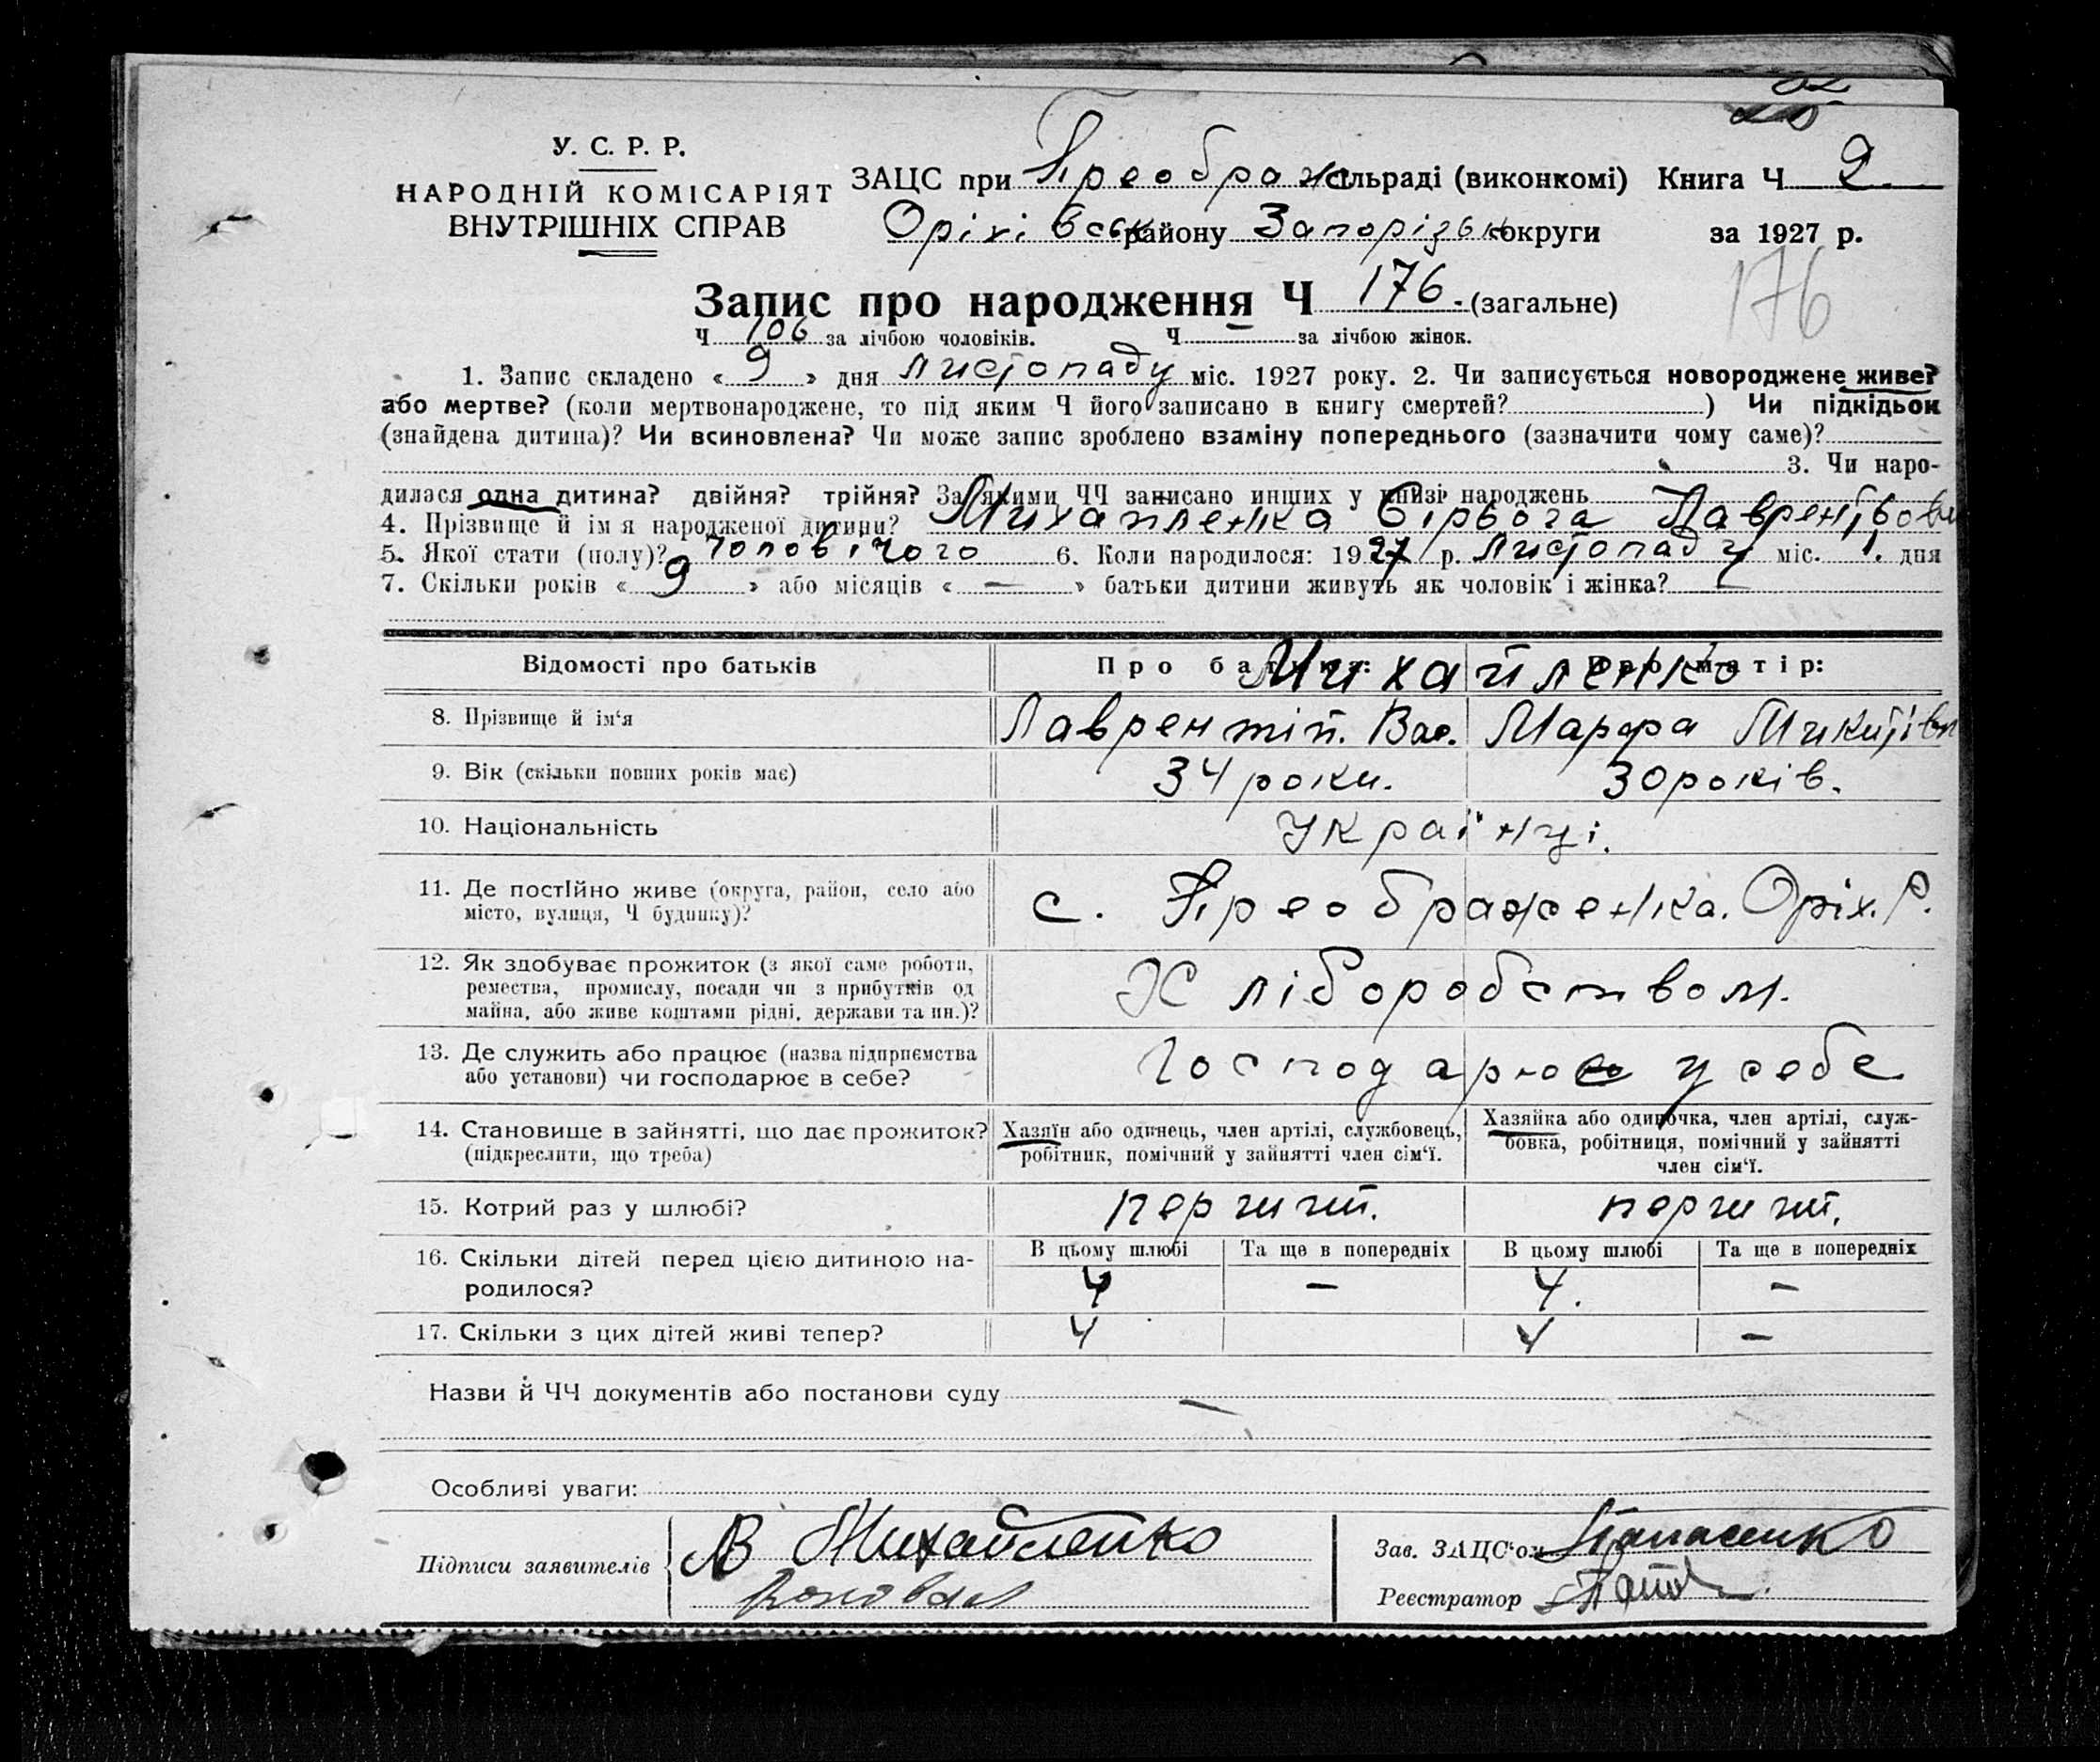 У. С. Р. Р.
НАРОДНІЙ КОМІСАРІЯТ
ВНУТРІШНІХ СПРАВ
ЗАЦС при Преображ сільраді (виконкомі) Книга Ч 2
Оріхівськ району Запорізьк округи за 1927 р.
176
Запис про народження Ч 176 (загальне)
Ч 106 за лічбою чоловіків. Ч — за лічбою жінок.
1. Запис складено « 9 » дня листопаду міс. 1927 року. 2. Чи записується новороджене живе?
або мертве? (коли мертвонароджене, то під яким Ч його записано в книгу смертей? ) Чи підкідьок
(знайдена дитина)? Чи всиновлена? Чи може запис зроблено взаміну попереднього (зазначити чому саме)?
3. Чи наро-
дилася одна дитина? двійня? трійня? За якими ЧЧ записано инших у книзі народжень
4. Прізвище й імя народженої дитини? Михайленка Лаврентьови
5. Якої стати (полу)? чоловічого 6. Коли народилося: 1927 р. листопаду міс. 1. дня
7. Скільки років « 9 » або місяців « — » батьки дитини живуть як чоловік і жінка? —
Відомості про батьків Про батька: Про матір:
Михайленко
8. Прізвище й ім‘я Лаврентій. Вас. Марфа Микитівн
9. Вік (скільки повних років має) 34 роки. 30 років.
10. Національність Українці.
11. Де постійно живе (округа, район, село або
місто, вулиця, Ч будинку)? с. Преображенка. Оріх. Р.
12. Як здобуває прожиток (з якої саме роботи,
ремества, промислу, посади чи з прибутків од
майна, або живе коштами рідні, держави та ин.)? Хліборобством.
13. Де служить або працює (назва підприємства
або установи) чи господарює в себе? Господарює у себе
14. Становище в зайнятті, що дає прожиток?
(підкреслити, що треба)
Хазяїн або одинець, член артілі, службовець,
робітник, помічний у зайнятті член сім‘ї.
Хазяйка або одиночка, член артілі, служ-
бовка, робітниця, помічний у зайнятті
член сім‘ї.
15. Котрий раз у шлюбі? перший. перший.
16. Скільки дітей перед цією дитиною на-
родилося?
В цьому шлюбі Та ще в попередніх В цьому шлюбі Та ще в попередніх
4 — 4. —
17. Скільки з цих дітей живі тепер? 4 4 —
Назви й ЧЧ документів або постанови суду —
Особливі уваги:
Підписи заявителів Михайленко
Зав. ЗАЦС‘ом
Реєстратор